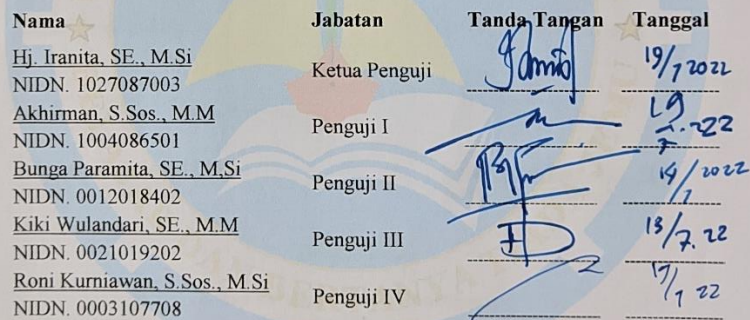 Nama Jabatan Tanda Tangan Tanggal
Hj. Iranita, SE., M.Si
NIDN. 1027087003
Ketua Penguji 19/7 2022
Akhirman, S.Sos., M.M
NIDN. 1004086501
Penguji I
Bunga Paramita, SE., M,Si
NIDN. 0012018402
Penguji II 14/7 2022
Kiki Wulandari, SE., M.M
NIDN. 0021019202
Penguji III 13/7.22
Roni Kurniawan, S.Sos., M.Si
NIDN. 0003107708
Penguji IV